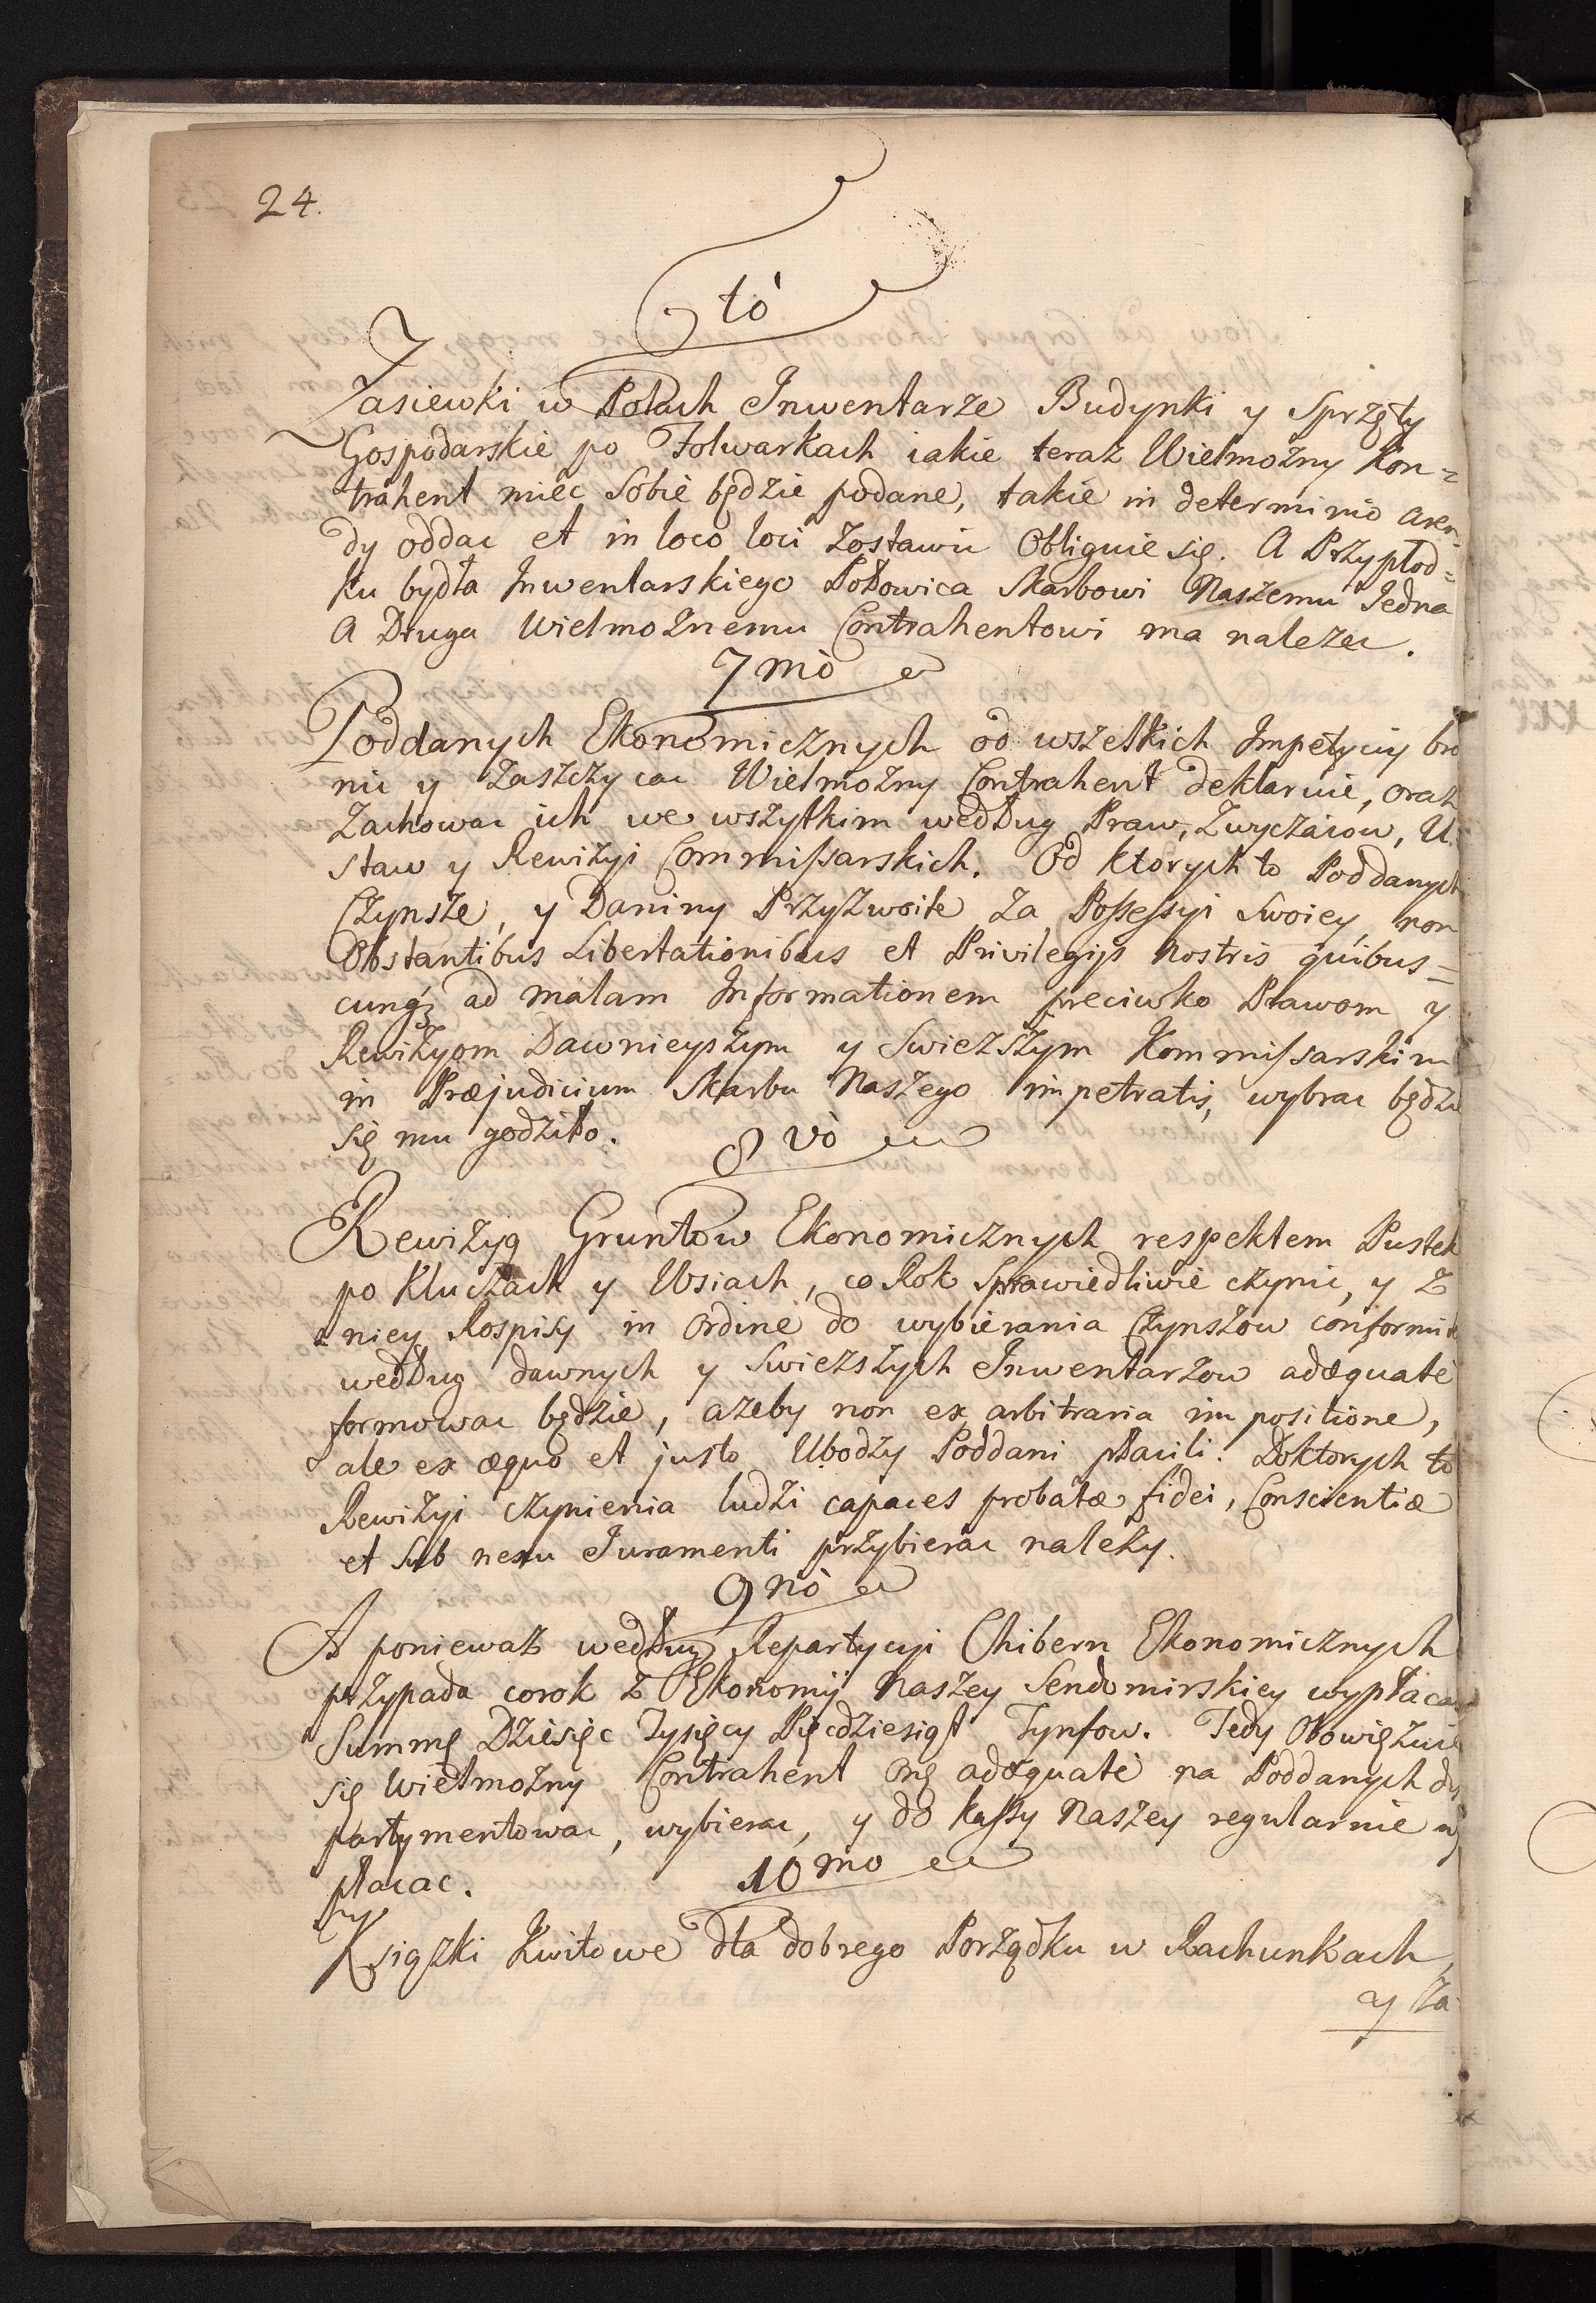 24.
6 tò
Zasiewki w Polach Inwentarze Budynki y Sprzęty
Gospodarskie po Folwarkach iakie teraz Wielmożny Kon=
trahent miec Sobie będzie podane, takie in determinio aren=
dy oddac et in loco loci zostawic Obliguie się. A Przypłod=
ku bydła Inwentarskiego Połowica Skarbowi Naszemu Jedna
A Druga Wielmożnemu Contrahentowi ma nalezec.
7 mò
Poddanych Ekonomicznych od wszelkich Impetycyi bro
nic y Zaszczycac Wielmożny Contrahent deklaruie, oraz
Zachowac ich we wszytkim według Praw, Zwyczaiow, U=
staw y Rewizyi Commissarskich. Od ktorych to Poddanych
Czynsze, y Daniny Przyzwoite za Possessyi Swoiey, non
Obstantibus Libertationibus et Privilegijs Nostris quibus=
cunq3 ad malam Informationem preciwko Prawom y
Rewizyom Dawnieyszym y Swiezszym Kommissarskim
in Præjudicium Skarbu Naszego impetratis, wybrac będzie
się mu godziło.
8 vò
Rewizyą Gruntow Ekonomicznych respektem Pustek
po Kluczach y Wsiach, co Rok Sprawiedliwie czynic, y z
niey Rospisy in Ordine do wybierania Czynszow conformite
według dawnych y Swiezszych Inwentarzow adæquatè
formowac będzie, azeby non ex arbitraria impositione,
ale ex æquo et justo Ubodzy Poddani płacili. Doktorych to
Rewizyi czynienia ludzi capaces probatæ fidei, Conscientiæ
et sub nexu Juramenti przybierac nalezy.
9 nò
A poniewaz według Repartycyi Chibern Ekonomicznych
przypada corok z Ekonomij Naszey Sendomirskiey wypłacac
Summę Dziesięc Tysięcy Pięcdziesiąt Tynfow. Tedy Obowięzuie
się Wielmożny Contrahent Onę adæquatè na Poddanych dy
partymentowac, wybierac, y do kassy Naszey regularnie wy
płacac.
10 mo
Ksiąszki Kwitowe dla dobrego Porządku w Rachunkach,
y Za